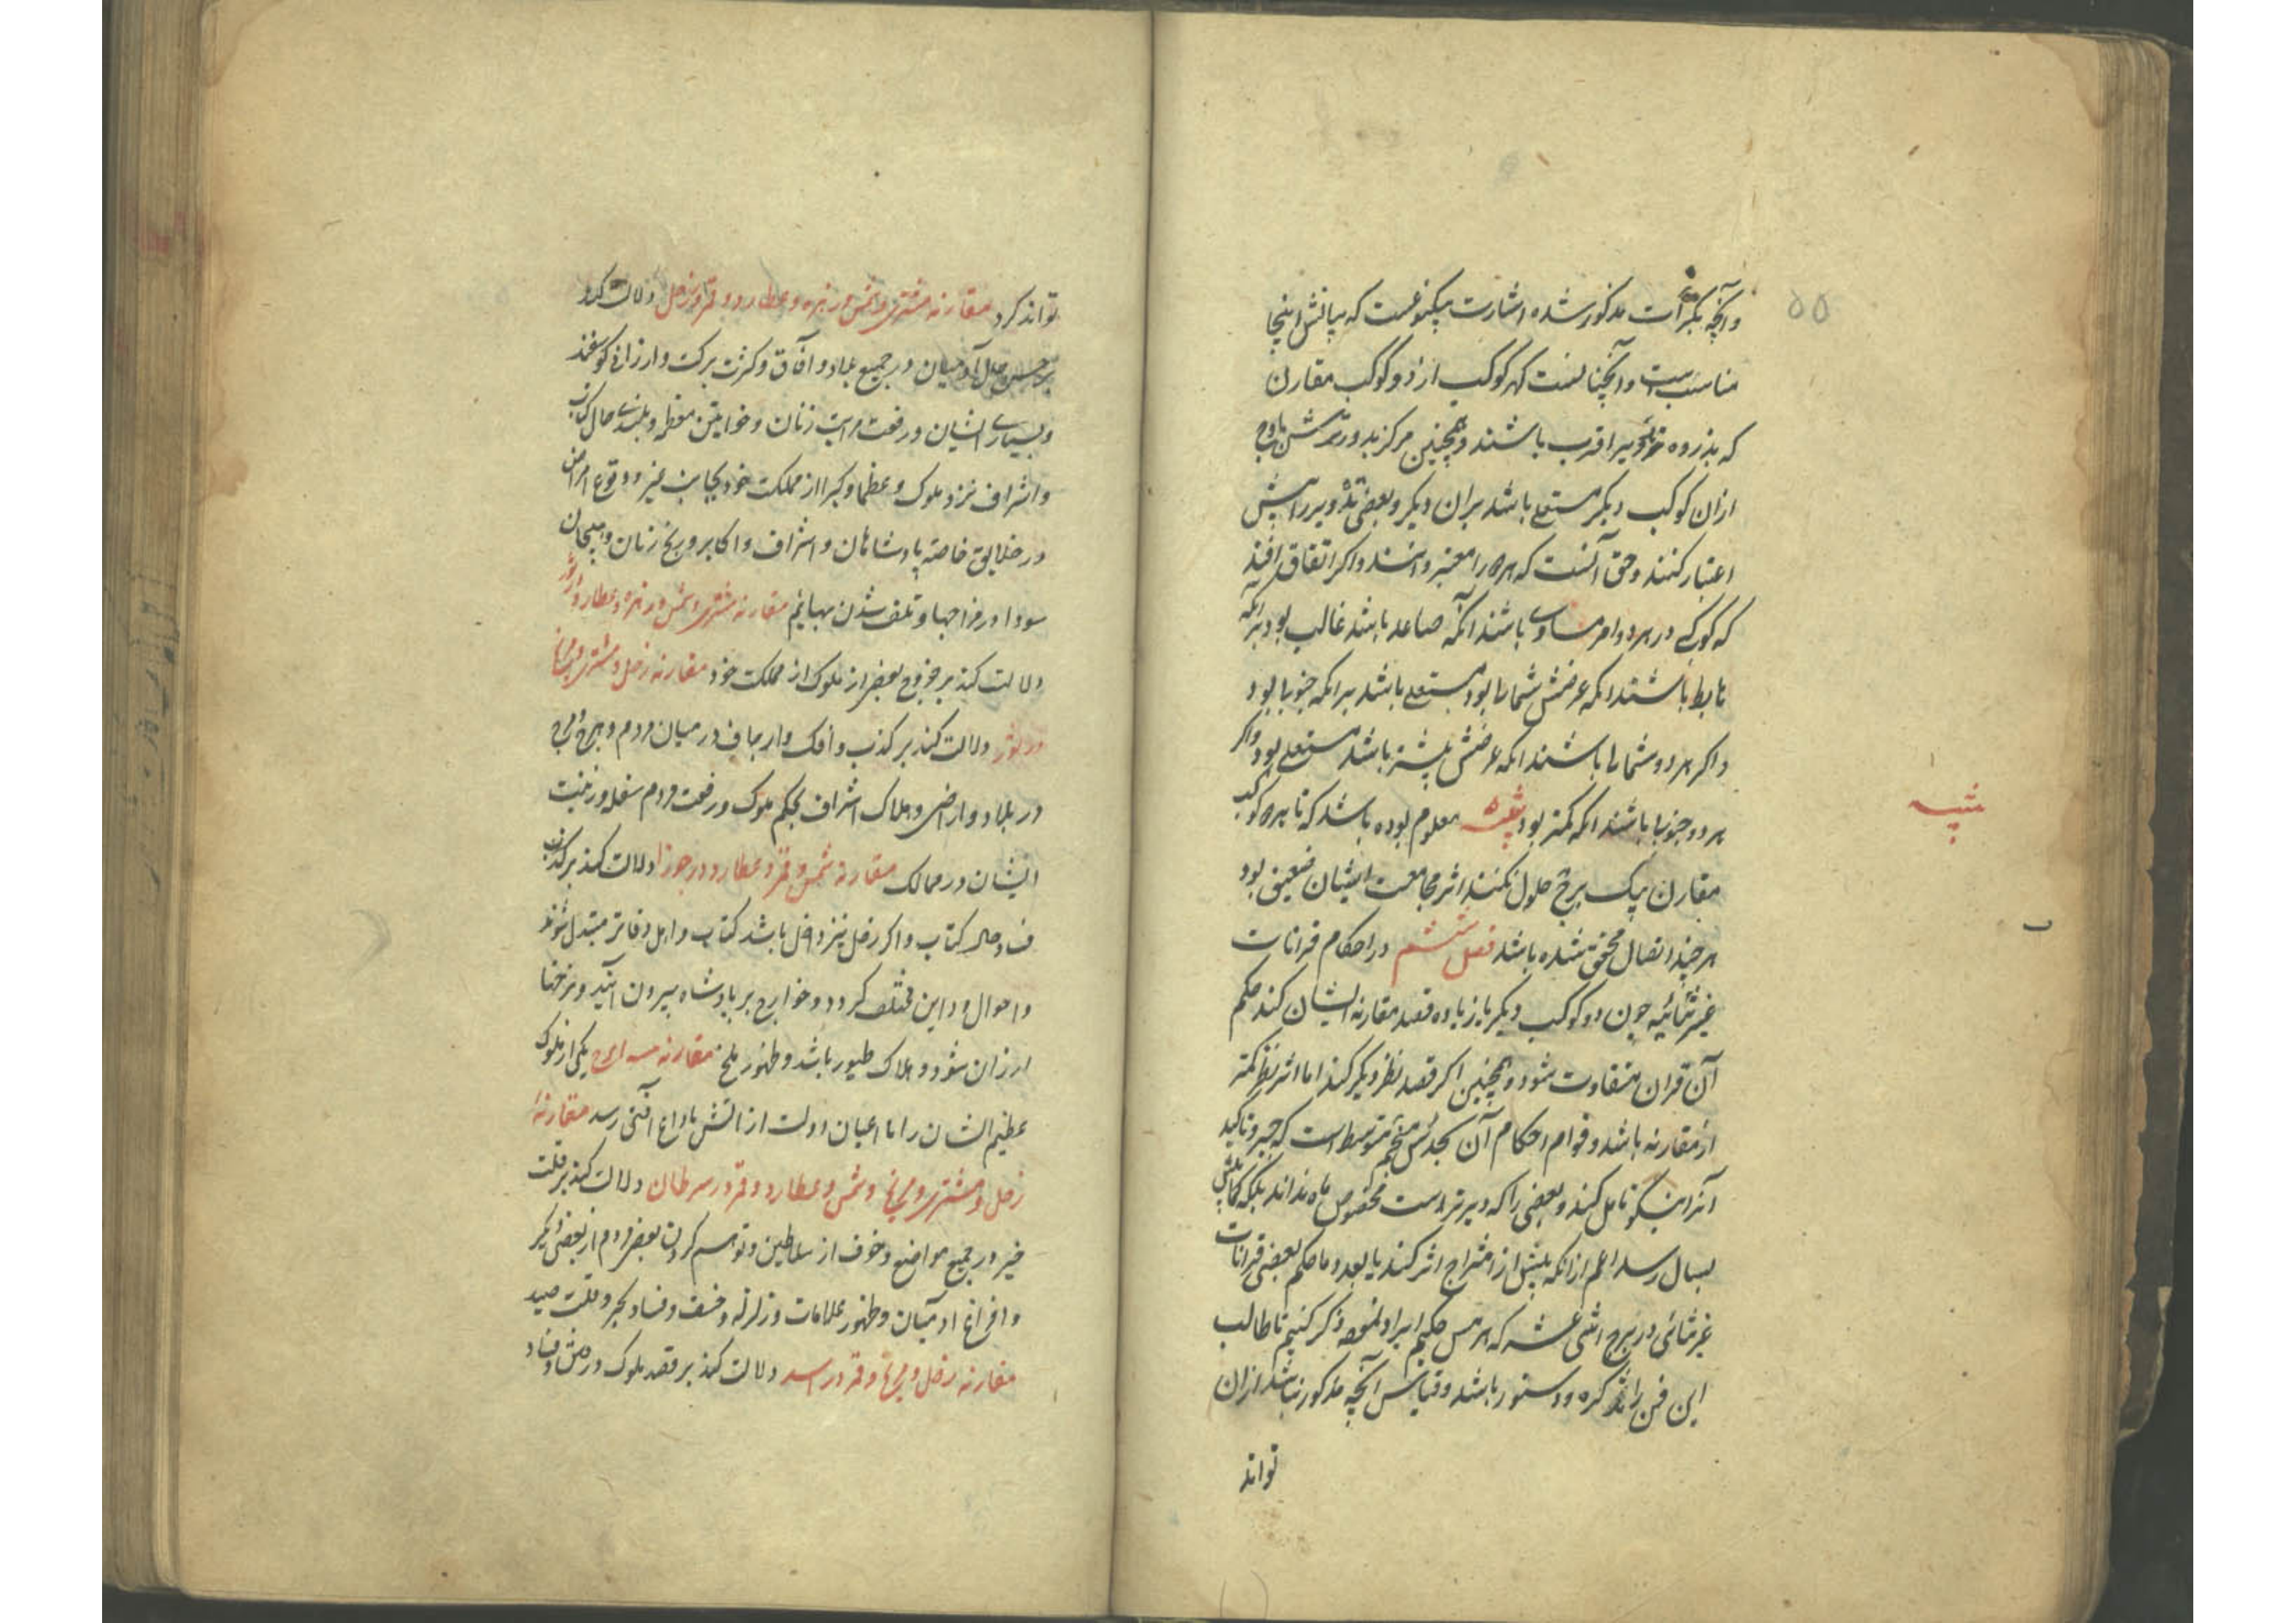 ۵۵
وآنچه بکرات مذکور شده اشارت بیکنوعست که بیانش اینجا
مناسب است وآنچنانست که هر کوکب از دو کوکب مقارن
که بذروه تدویر اقرب باشند و همچنین مرکز تدویرش باوج
ازان کوکب دیکر مستعلی باشد بران دیکر و بعضی تدویر را پیش
اعتبار کنند و حق آنست که هر دو را معتبر دانند و اکر اتفاق افتد
که کوکبی در هر دو امر مساوی باشند آنکه صاعد باشد غالب بود برانکه
هابط باشند انکه عرضش شمالی بود مستعلی باشد برانکه جنوبی بود
واکر هر دو شمالی باشند انکه عرضش بیشتر باشد مستعلی بود واکر
هر دو جنوبی باشند انکه کمتر بود معلوم بوده باشد که تا هر دو کوکب
تنبیه
مقارن بیک برج حلول نکنند اثر مجامعت ایشان ضعیف بود
هر چند اتصال محقق شده باشد فصل ششم در احکام قرانات
غیر ثنائیه چون دو کوکب دیکر یا زیاده قصد مقارنه ایشان کند حکم
آن قران متفاوت شود و همچنین اکر قصد نظر دیکر کند اما اثر نظر کمتر
از مقارنه باشد و قوام احکام آن بحدس منجم متوسط است که جبر و تاکید
آنرا نیکو تامل کند و بعضی را که دیرتر است مخصوص ماه نداند بلکه
بسال رسد اعم ازانکه پیش از امتزاج اثر کند یا بعد و ما حکم بعضی قرانات
غیر ثنائی در بروج اثنی عشر که هرمس حکیم ایراد نموده ذکر کنیم تا طالب
این فن را تذکره و دستور باشد و قیاس آنچه مذکور نباشد ازان
تواند
تواند کرد مقارنه مشتری و شمس و زهره و عطارد و قمر و زحل دلالت کند
بر حسن حال آدمیان در جمیع بلاد و آفاق و کثرت برکت و ارزانی کوسفند
و بسیاری ایشان و رفعت مراتب زنان و خواتین معظمه و بلندی حال کتاب
و اشراف نزد ملوک و عظما و کبرا از مملکت خود بجانب غیر و وقوع امراض
در خلایق خاصه پادشاهان و اشراف و اکابر و رنج زنان و هیجان
سودا در مزاجها و تلف شدن بهایم مقارنه مشتری و شمس و زهره و عطارد در ثور
دلالت کند بر خروج بعضی از ملوک از مملکت خود مقارنه زحل و مشتری و مریخ
در ثور دلالت کند بر کذب و افک و ارجاف در میان مردم و هرج و مرج
در بلاد و اراضی و هلاک اشراف بحکم ملوک و رفعت مردم سفله و زینت
ایشان در ممالک مقارنه شمس و قمر و عطارد در جوزا دلالت کند بر کذب
فساد حال کتاب و اکر زحل نیز داخل باشد کتاب و اهل دفاتر مبتدل شوند
و احوال دواین مختلف کردد و خوارج بر پادشاه بیرون آیند و نرخها
ارزان شود و هلاک طیور باشد و ظهور ملخ مقارنه یکی از ملوک
عظیم الشان را با اعیان دولت از آتش یا داغ آفتی رسد مقارنه
زحل و مشتری و مریخ و شمس و عطارد و قمر در سرطان دلالت کند بر قلت
خیر در جمیع مواضع و خوف از سلاطین و توهم کردن بعضی مردم از بعضی دیکر
و افراغ ادمیان و ظهور علامات و زلزله و خسف و فساد بحر و قلت صید
مقارنه زحل و مریخ و قمر در اسد دلالت کند بر قصد ملوک